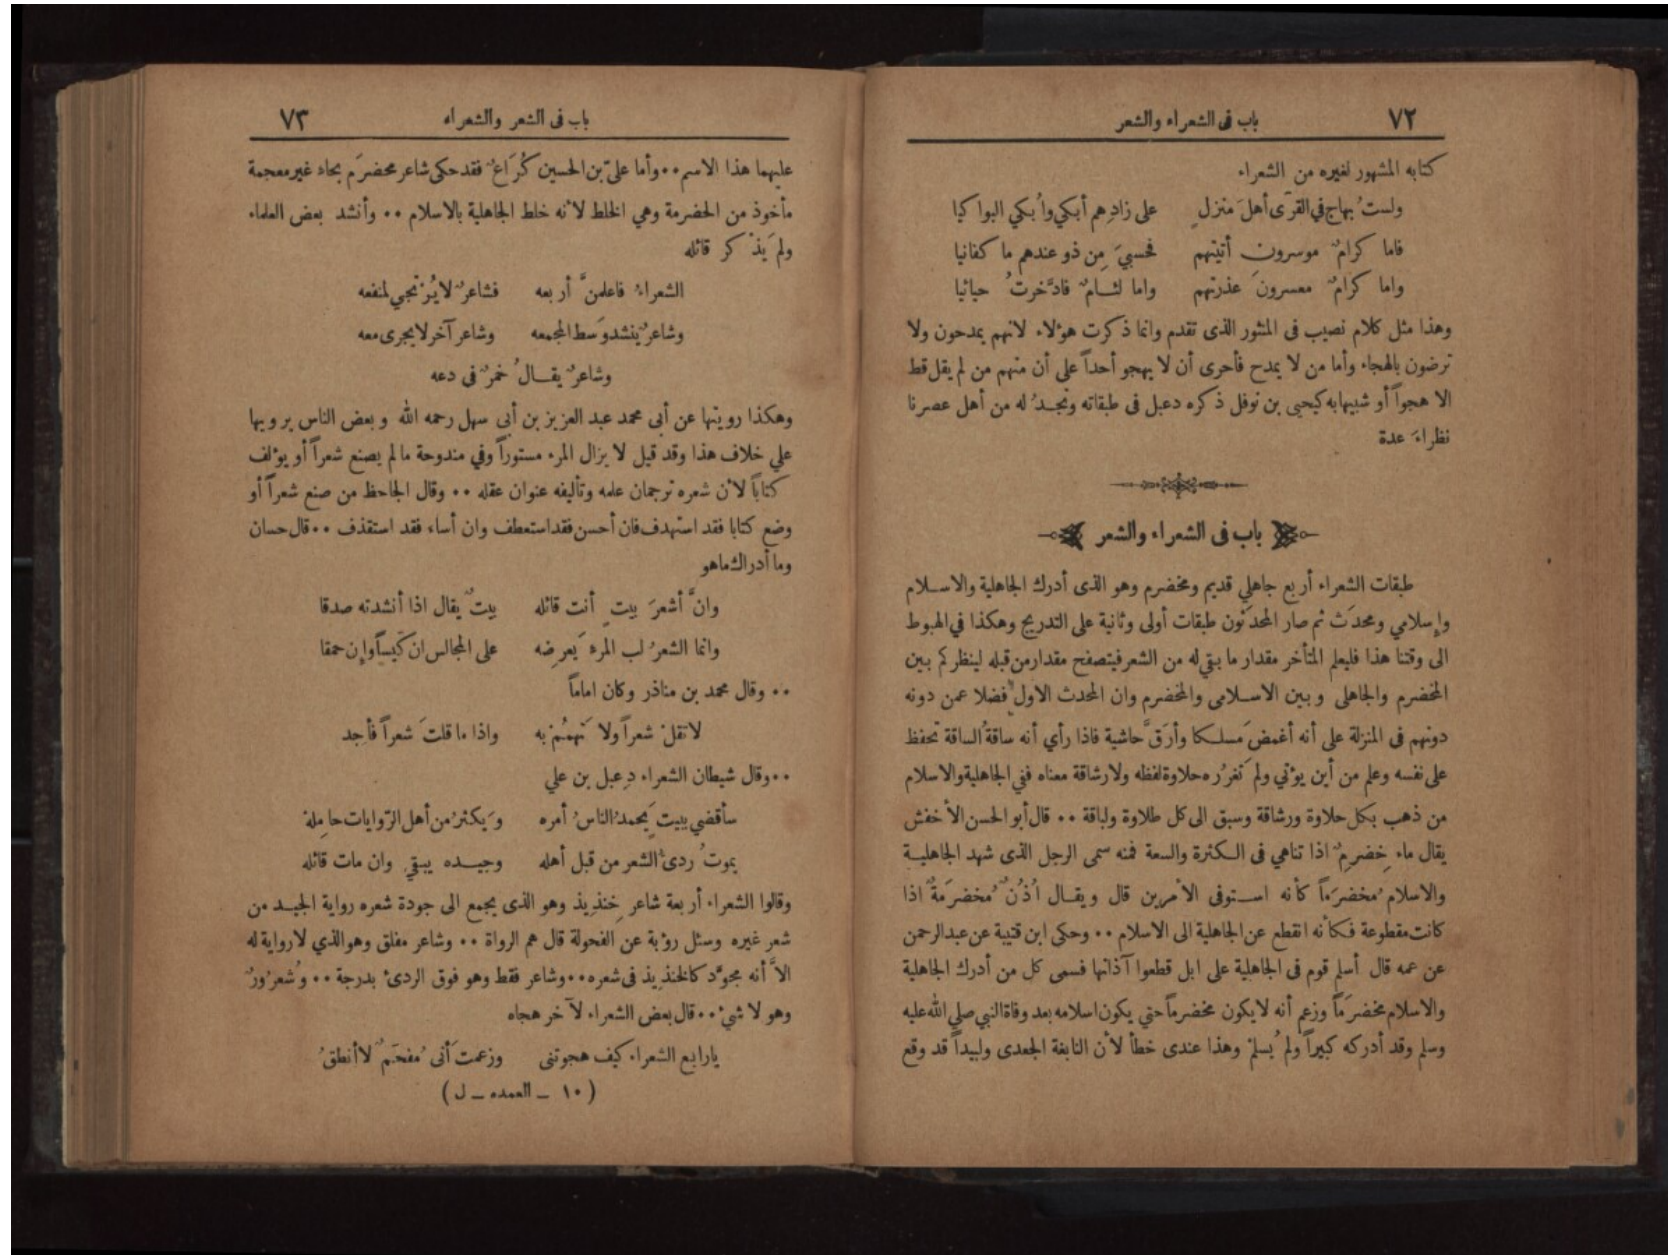 ٧٢
باب فى الشعراء والشعر
كتابه المشهور لغيره من الشعراء
ولستُ بهاج في القرى أهلَ منزلٍ على زادِهم أبكي وأُبكي البواكيا
فاما كرامٌ موسرون أتيتهم فحسبيَ مِن ذو عندهم ما كفانيا
واما كرامٌ معسرون عذرتهم واما لئامٌ فادَّخرتُ حيائيا
وهذا مثل كلام نصيب فى المنثور الذى تقدم وانما ذكرت هؤلاء لانهم يمدحون ولا
ترضون بالهجاء وأما من لا يمدح فأحرى أن لا يهجو أحداً على أن منهم من لم يقل قط
الا هجواً أو شبيها به كيحيى بن نوفل ذكره دعبل فى طبقاته ونجدُ له من أهل عصرنا
نظراءَ عدة
باب فى الشعراء والشعر
طبقات الشعراء أربع جاهلي قديم ومخضرم وهو الذى أدرك الجاهلية والاسلام
وإسلامي ومحدَث ثم صار المحدَثون طبقات أولى وثانية على التدريج وهكذا في الهبوط
الى وقتنا هذا فليعلم المتأخر مقدار ما بقي له من الشعر فيتصفح مقدار من قبله لينظر كم بين
المخضرم والجاهلى وبين الاسلامى والمخضرم وان المحدث الاول فضلا عمن دونه
دونهم فى المنزلة على أنه أغمض مَسلكا وأرَقَّ حاشية فاذا رأي أنه ساقةُ الساقة تحفظ
على نفسه وعلم من أين يؤتي ولم تَغرُره حلاوة لفظه ولا رشاقة معناه ففي الجاهلية والاسلام
من ذهب بكل حلاوة ورشاقة وسبق الى كل طلاوة ولباقة ٠٠ قال أبو الحسن الأخفش
يقال ماء خِضرِمٌ اذا تناهي فى الكثرة والسعة فمنه سمى الرجل الذى شهد الجاهلية
والاسلام مُخضرَماً كأنه استوفى الأمرين قال ويقال اُذُنٌ مُخضرَمةٌ اذا
كانت مقطوعة فكأنه انقطع عن الجاهلية الى الاسلام ٠٠ وحكى ابن قتيبة عن عبد الرحمن
عن عمه قال أسلم قوم فى الجاهلية على ابل قطعوا آذانها فسمى كل من أدرك الجاهلية
والاسلام مخضرَماً وزعم أنه لا يكون مخضرماً حتي يكون اسلامه بعد وفاة النبي صلى الله عليه
وسلم وقد أدركه كبيراً ولم يُسلمْ وهذا عندى خطأ لأن النابغة الجعدى ولبيداً قد وقع
باب فى الشعر والشعراء
٧٣
عليهما هذا الاسم ٠٠ وأما علىّ بن الحسين كُرَاعٌ فقد حكى شاعر محضرَم بحاء غير معجمة
مأخوذ من الحضرمة وهي الخلط لأنه خلط الجاهلية بالاسلام ٠٠ وأنشد بعض العلماء
ولم يَذْكر قائله
الشعراءُ فاعلمنَّ أربعه فشاعرٌ لا يُرْتجي لمنفعه
وشاعرٌ ينشد وَسط المجمعه وشاعر آخر لا يجرى معه
وشاعرٌ يقالُ خمرٌ فى دعه
وهكذا رويتها عن أبى محمد عبد العزيز بن أبى سهل رحمه الله وبعض الناس يرويها
علي خلاف هذا وقد قيل لا يزال المرء مستوراً وفي مندوحة مالم يصنع شعراً أو يؤلف
كتاباً لأن شعره ترجمان علمه وتأليفه عنوان عقله ٠٠ وقال الجاحظ من صنع شعراً أو
وضع كتابا فقد استهدف فان أحسن فقد استعطف وان أساء فقد استقذف ٠٠ قال حسان
وما أدراك ماهو
وانَّ أشعرَ بيتٍ أنت قائله بيتٌ يقال اذا أنشدته صدقا
وانما الشعرُ لب المرء يَعرِضه على المجالس ان كَيساً وإن حمقا
٠٠ وقال محمد بن مناذر وكان اماماً
لا تقلْ شعراً ولا تهمُمْ به واذا ما قلتَ شعراً فأجد
٠٠ وقال شيطان الشعراء دِعبل بن علي
سأقضي ببيتٍ يَحمدُ الناسُ أمره ويَكثرُ من أهل الرّوايات حامِله
يموتُ ردئُ الشعر من قبل أهله وجيده يبقي وان مات قائله
وقالوا الشعراء أربعة شاعر خِنذِيذ وهو الذى يجمع الى جودة شعره رواية الجيد من
شعر غيره وسئل رؤبة عن الفحولة قال هم الرواة ٠٠ وشاعر مفلق وهو الذي لا رواية له
الاَّ أنه مجوّد كالخنذيذ فى شعره ٠٠ وشاعر فقط وهو فوق الردئ بدرجة ٠٠ وشُعرُورٌ
وهو لا شئ ٠٠ قال بعض الشعراء لآخر هجاه
يا رابع الشعراء كيف هجوتنى وزعمتَ أنى مُفحَمٌ لا أنطقُ
( ١٠ ـ العمده ـ ل )